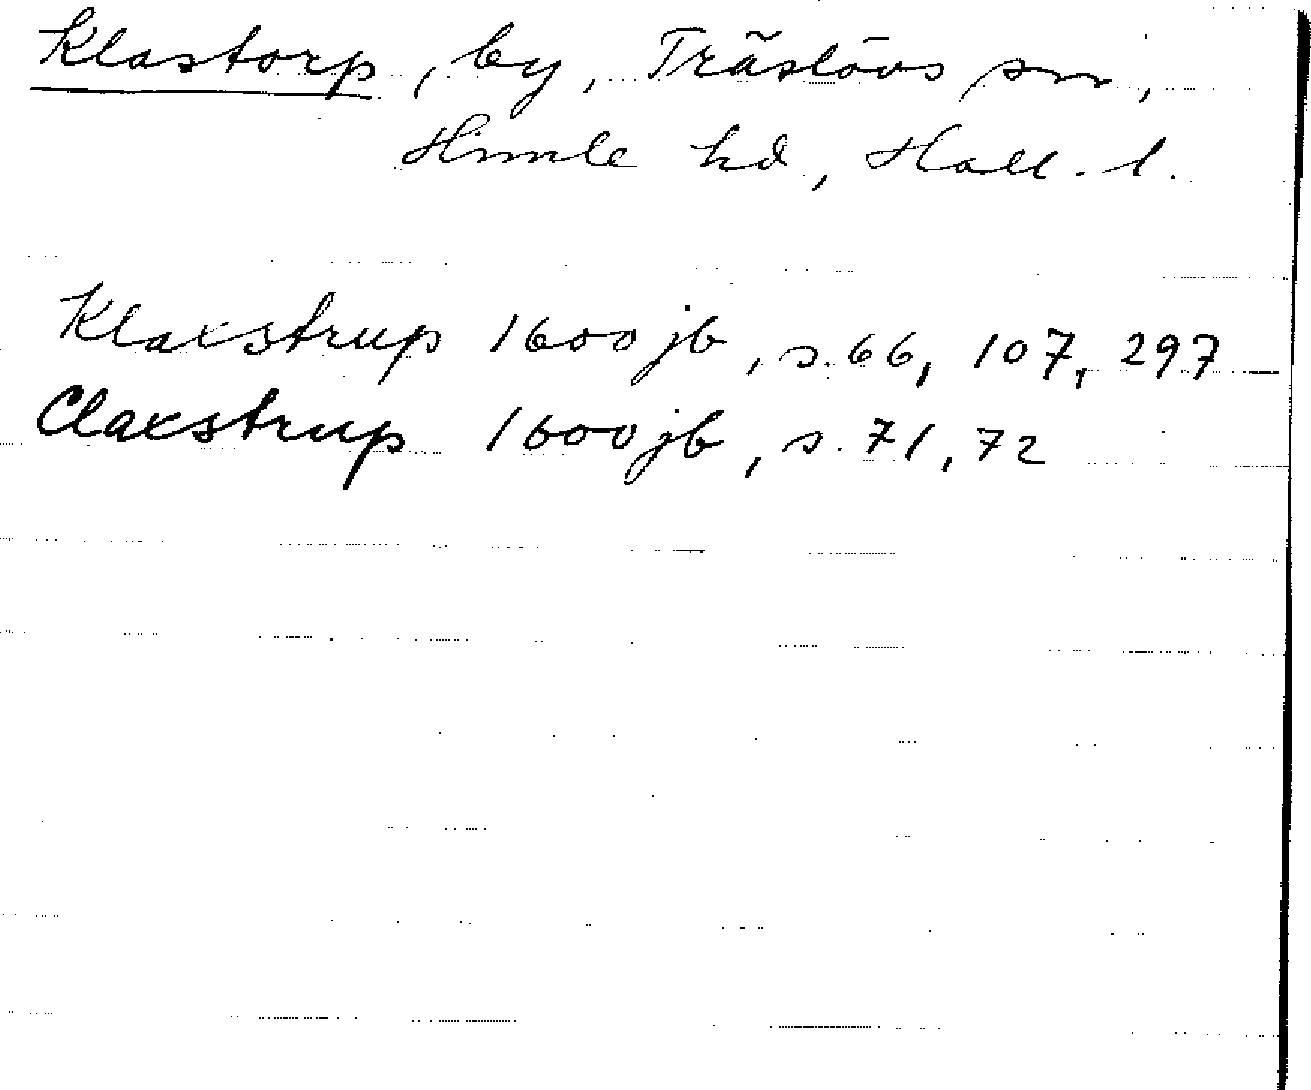 Klastorp, by, Träslövs sn,
Himle hd, Hall. l.
Klaxstrup 1600 jb, s. 66, 107, 297
Claxstrup 1600 jb, s. 71, 72